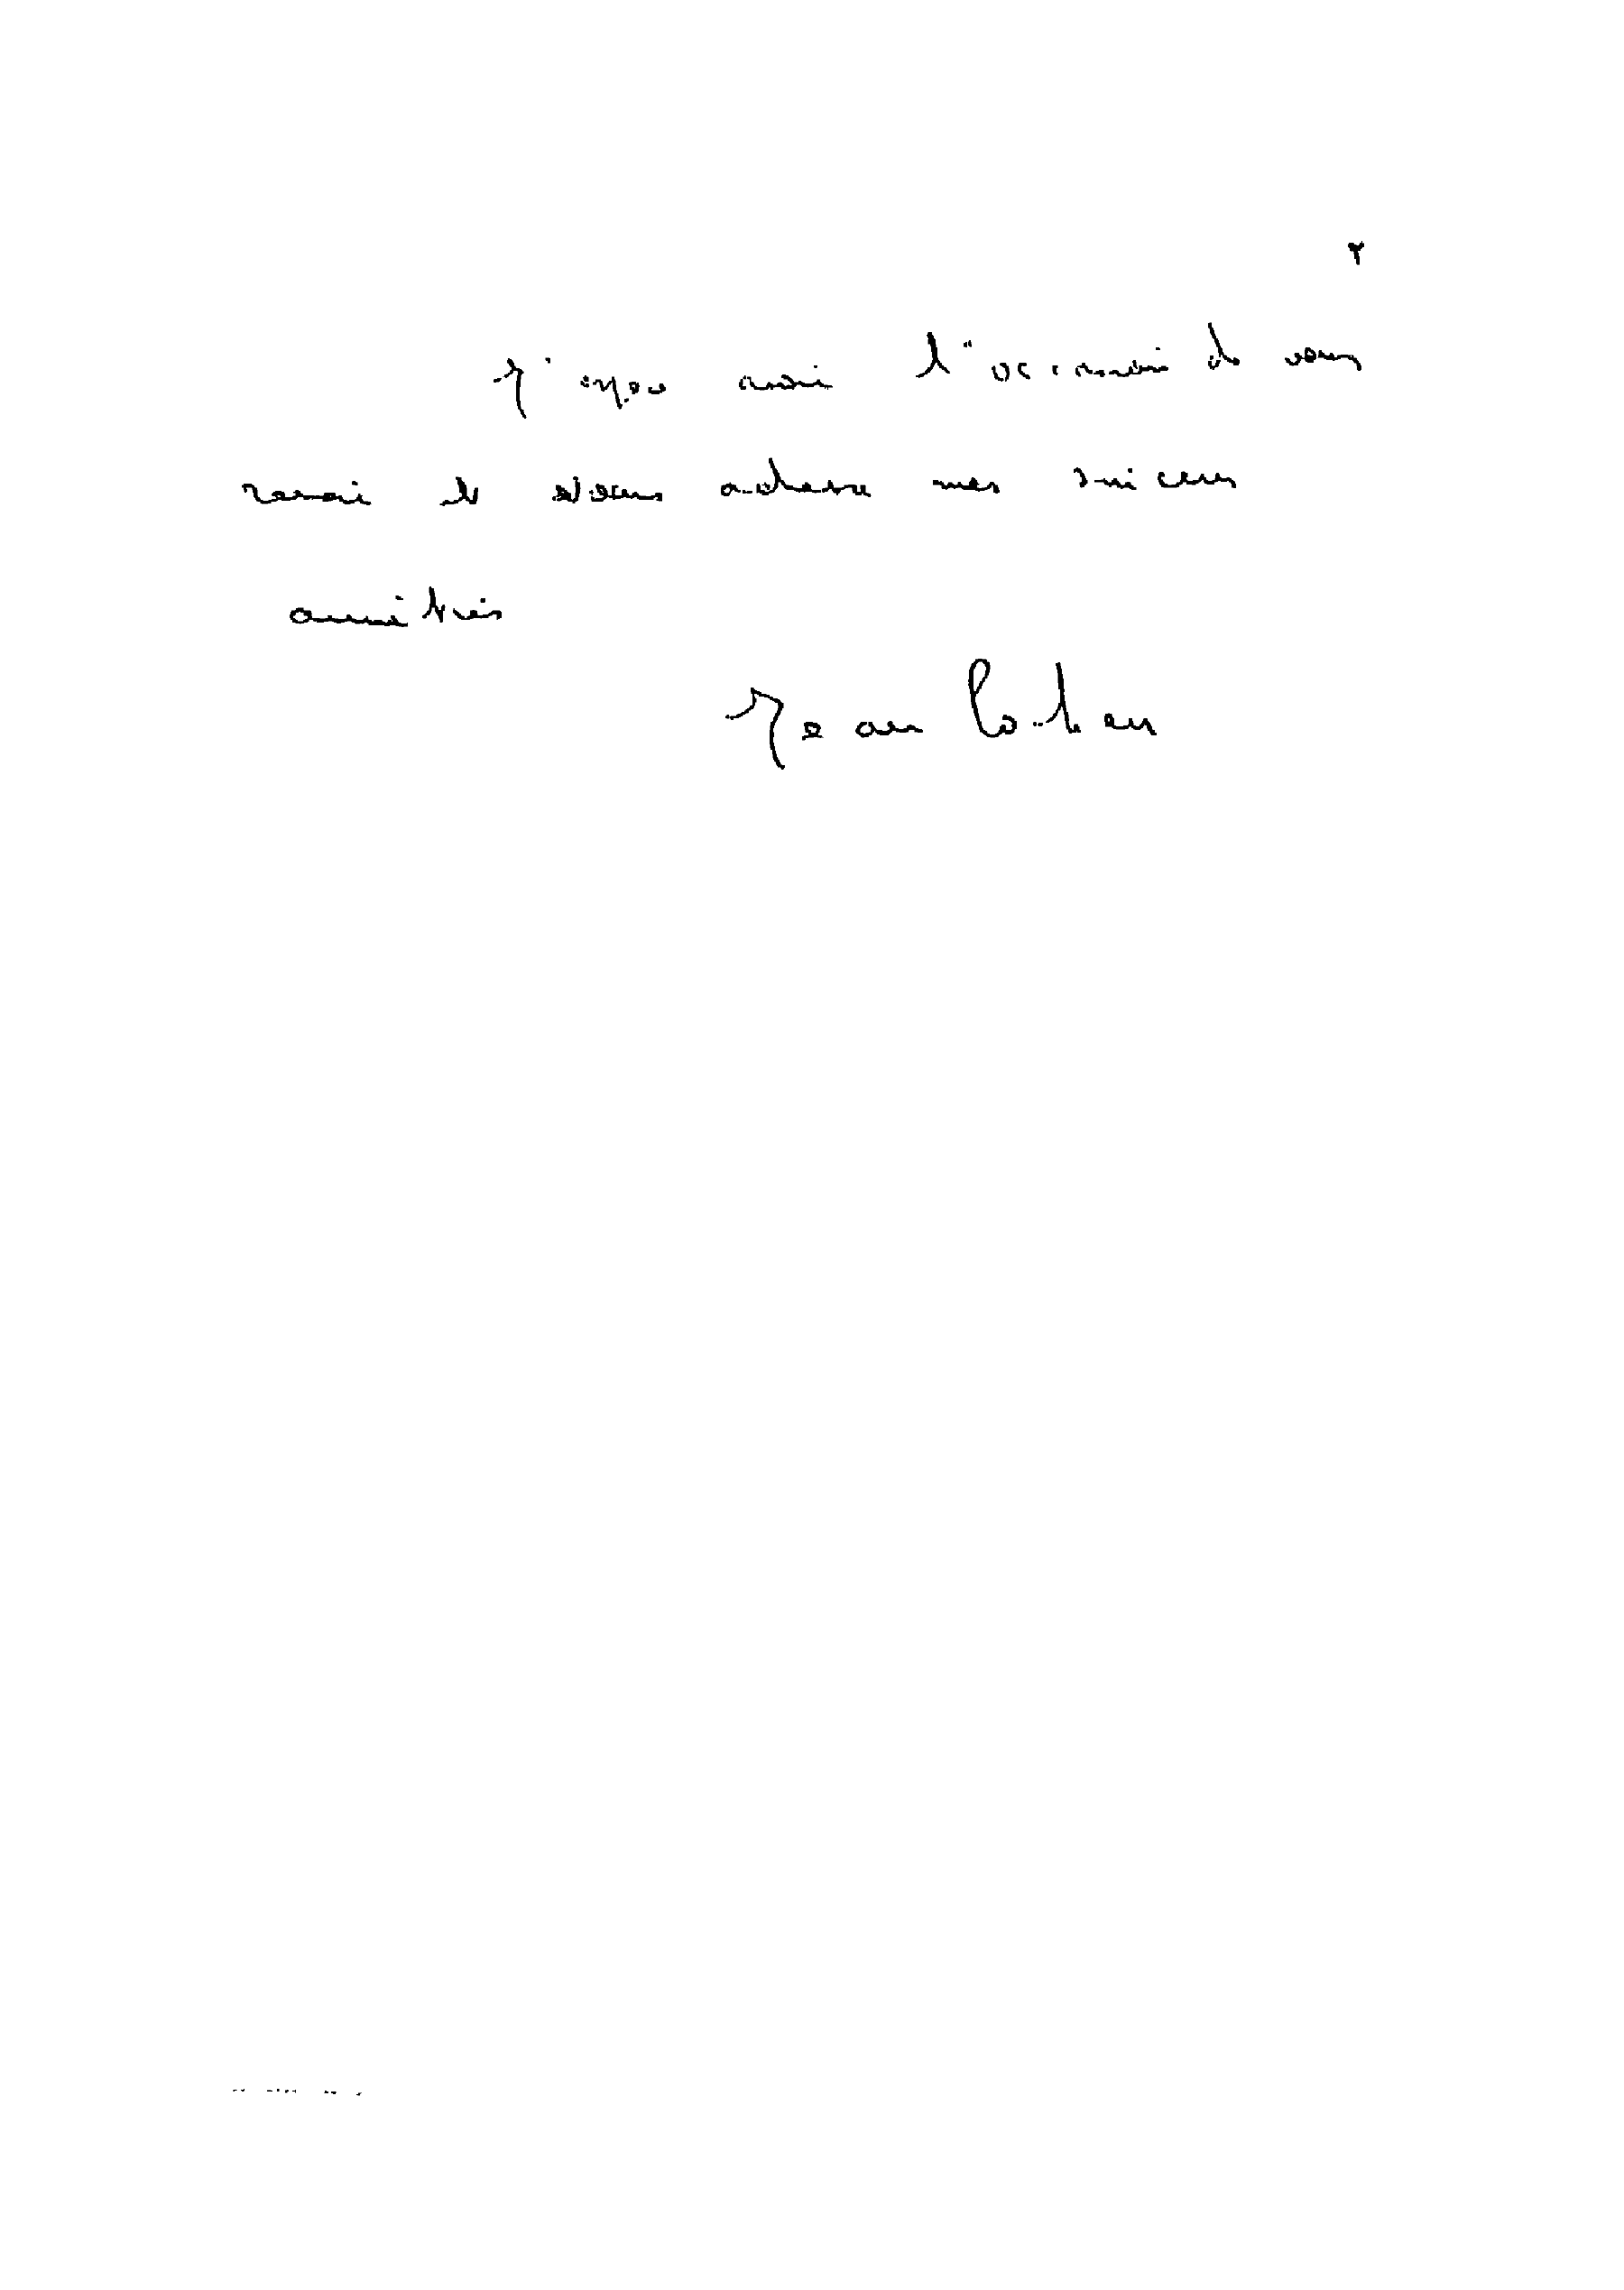 J'espère avoir l'occasion de vous
revoir et vous adresse mes sincères
amitiés
Jean Cohen